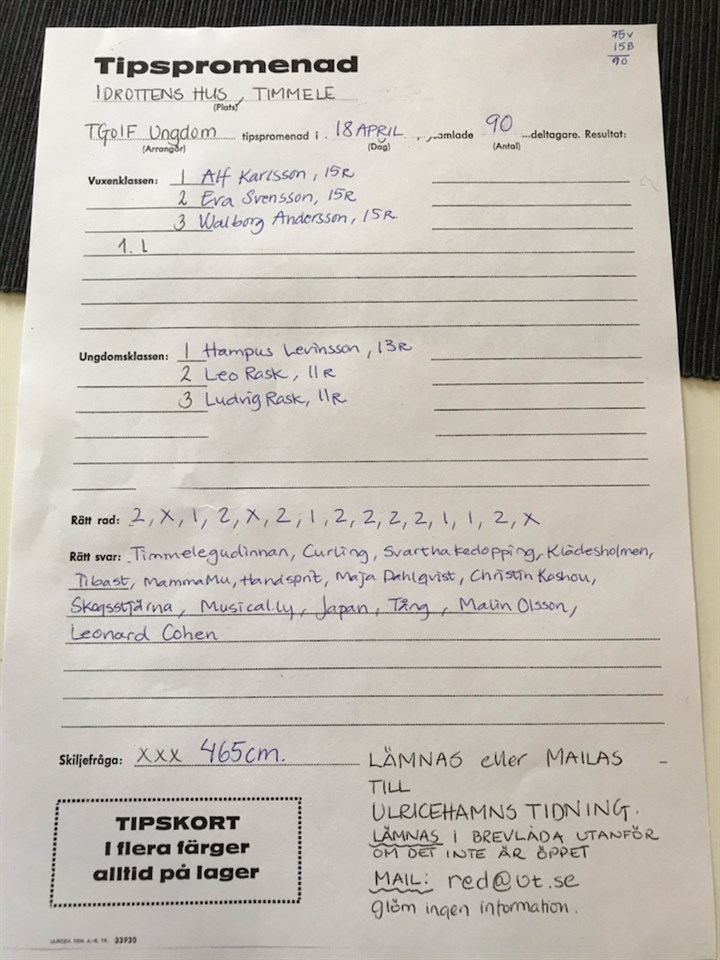 75V
15B
90
Tipspromenad
IDROTTENS HUS, TIMMELE
(Plats)
TGoIF Ungdom tipspromenad i 18 APRIL samlade 90 deltagare. Resultat:
(Arrangör) (Dag) (Antal)
Vuxenklassen: 1 Alf Karlsson, 15R
2 Eva Svensson, 15R
3 Walborg Andersson, 15R
1. L
Ungdomsklassen: 1 Hampus Levinsson, 13R
2 Leo Rask, 11R
3 Ludvig Rask, 11R
Rätt rad: 2, X, 1, 2, X, 2, 1, 2, 2, 2, 2, 1, 1, 2, X
Rätt svar: Timmelegudinnan, Curling, Svarthakedopping, Klädesholmen,
Tibast, MammaMu, Handsprit, Maja Dahlqvist, Christin Koshou,
Skogsstjärna, Musical.ly, Japan, Tång, Malin Olsson,
Leonard Cohen
Skiljefråga: XXX 465cm.
LÄMNAS eller MAILAS
TILL
ULRICEHAMNS TIDNING.
LÄMNAS I BREVLÅDA UTANFÖR
OM DET INTE ÄR ÖPPET
MAIL: red@ut.se
glöm ingen information.
TIPSKORT
I flera färger
alltid på lager
33930